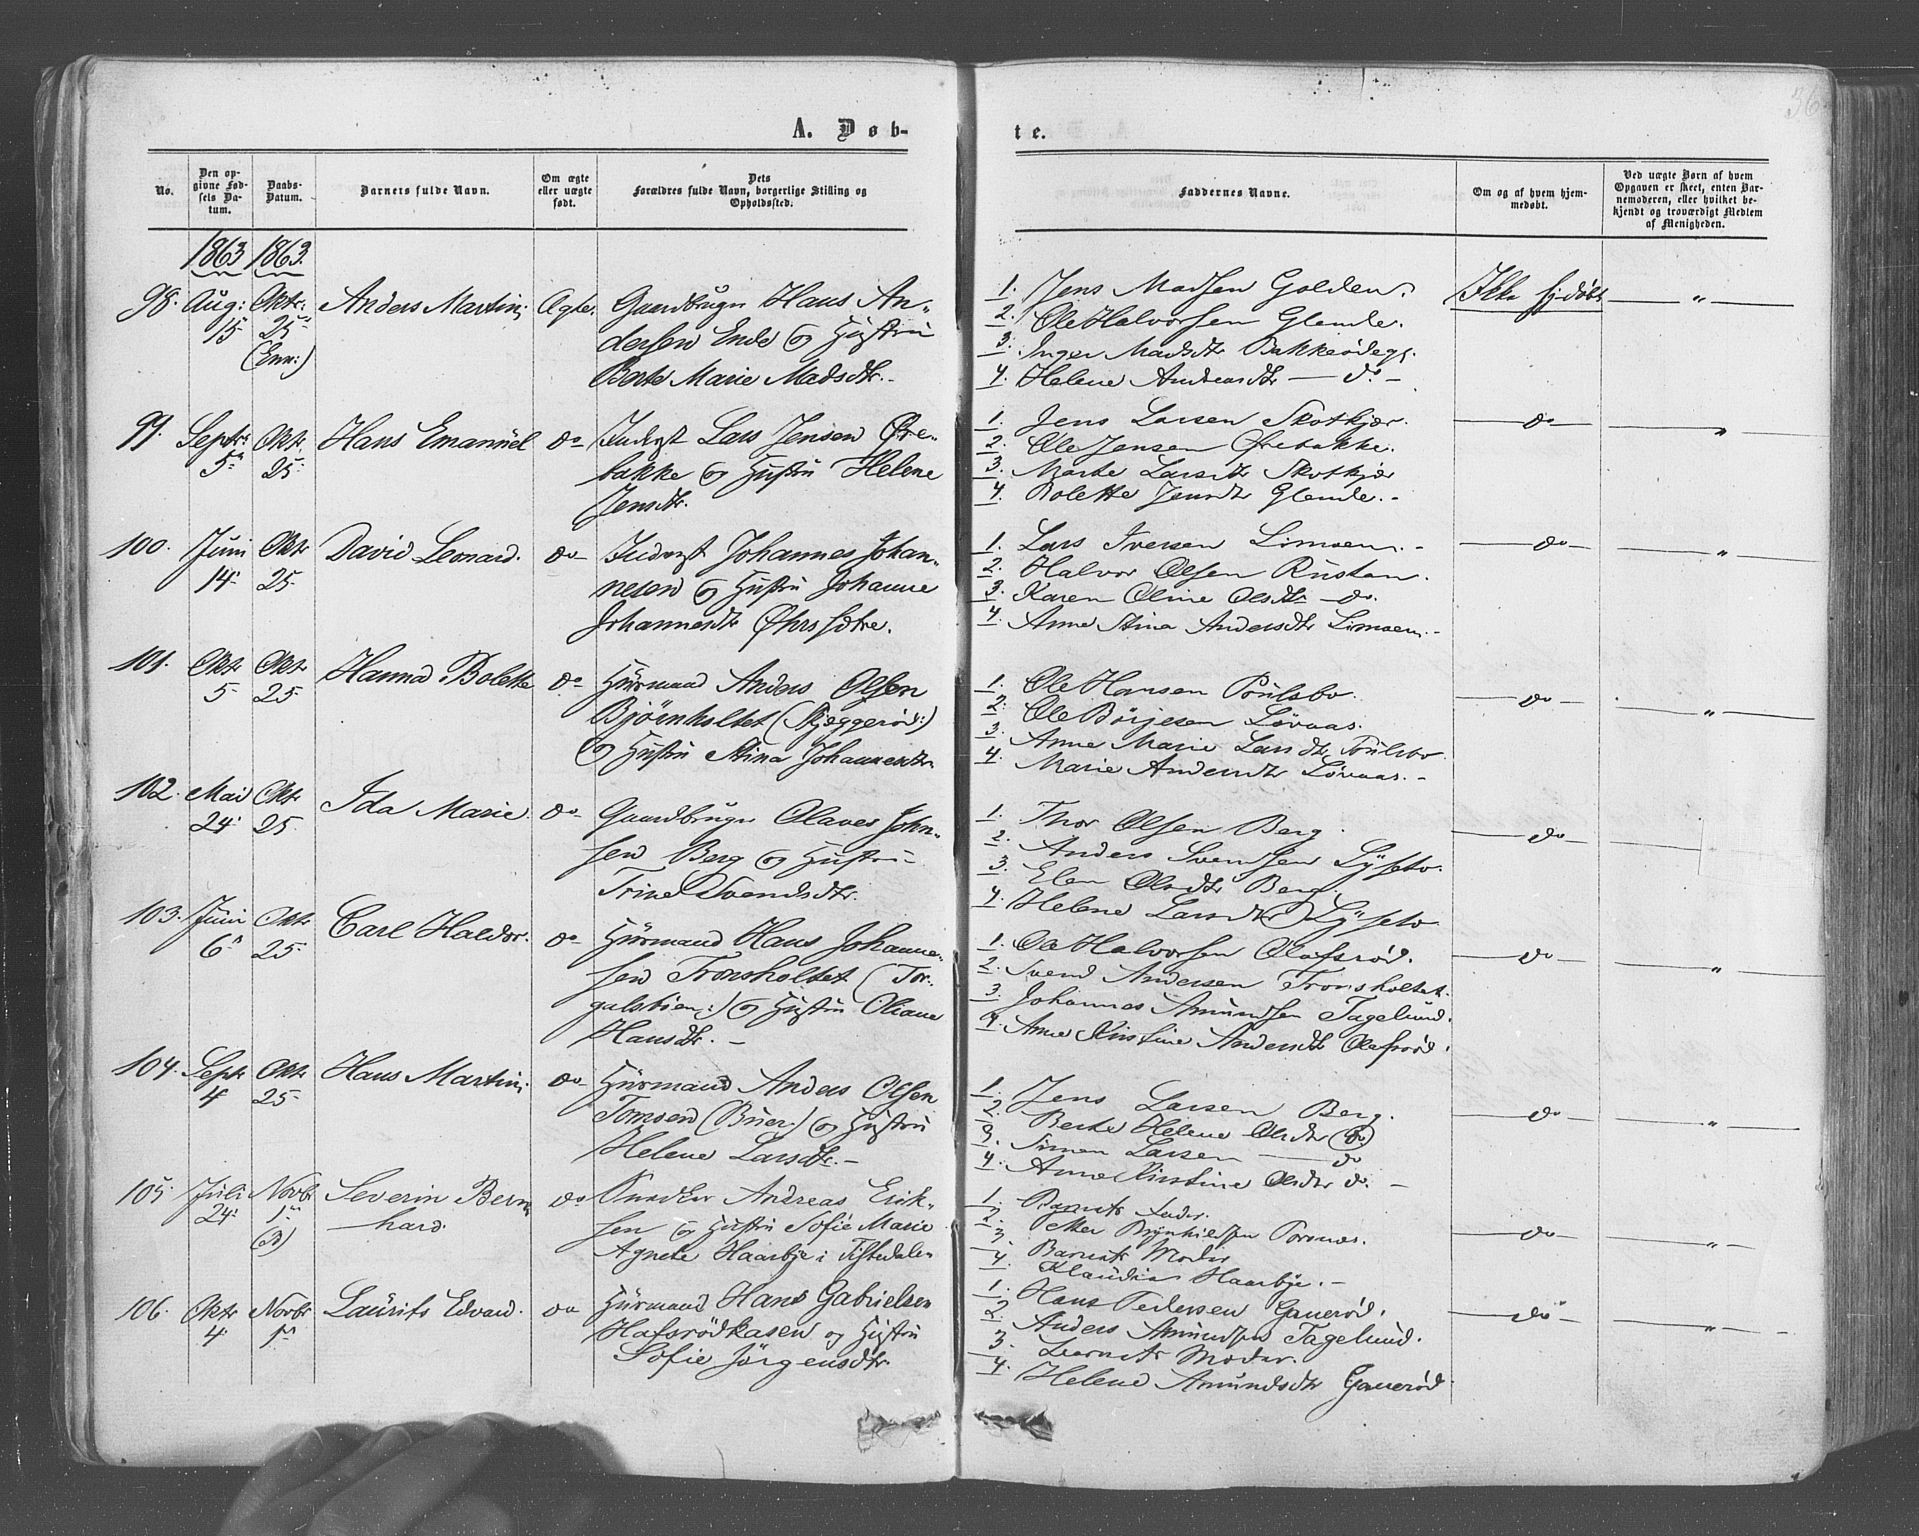 36
A. Døb-
te.
No.
Den opgivne Fødsels Datum.
Daabs-Datum.
Barnets fulde Navn.
Om ægte eller uægte født.
Dets Forældres fulde Navn, borgerlige Stilling og Opholdssted.
Faddernes Navne.
Om og af hvem hjemmedøbt.
Ved uægte Børn af hvem Opgaven er skeet, enten Barnemoderen, eller hvilket bekjendt og troværdigt Medlem af Menigheden.
1863 1863.
98. Aug: 15 Oktr: 25 (Enn:) Anders Martin; Ægte.
Gaardbruger Hans An-
dersen Ende og Hustru
Berte Marie Madsdtr. -
1. Jens Madsen Golden.
2. Ole Halvorsen Glemle.
3. Inger Madsdtr Bakkeødeg.
4. Helene Andreasdtr - do -
Ikke hjdøbt - " -
99. Septr: 5 Oktr. 25 Hans Emanuel do
Inderst Lars Jensen Øre-
bakke og Hustru Helene
Jensdtr.
1. Jens Larsen Skotkjær.
2. Ole Jensen Ørebakke.
3. Marte Larsdtr Skotkjær
4. Bolette Jensdtr Glemle. -
- do - "
100. Juni 14 Oktr 25. David Leonard. do
Inderst Johannes Johan-
nesen og Hustru Johanne
Johannesdtr Øhrssætre.
1. Lars Iversen Limoen. -
2. Halvor Olsen Rustan.
3. Karen Oline Olsdtr - do.
4. Anne Stina Andersdtr Limoen. -
- do - "
101. Oktr 5 Oktr 25 Hanna Bolette do
Huusmand Anders Olsen
Bjørnholtet (Skjeggerød:)
og Hustru Stina Johannesdtr
1. Ole Hansen Poulsbo.
2. Ole Börjesen Løvaas.
3. Anne Marie Larsdtr Poulsbo
4. Marie Andersdtr Løvaas. -
- do - "
102. Mai 24 Oktr 25. Ida Marie do
Gaardbruger Olaves John-
sen Berg og Hustru
Trine Svendsdtr.
1. Thor Olsen Berg.
2. Anders Svendsen Lysebo.
3. Elen Olsdtr Berg.
4. Helene Larsdtr Lysebo
- do -
103. Juni 6 Oktr 25 Carl Haldor. do
Huusmand Hans Johanne-
sen Tronsholtet (Tor-
galsbøen:) og Hustru Oliane
Hansdtr. -
1. Ole Halvorsen Olafsrød.
2. Svend Andersen Tronsholtet.
3. Johannes Amundsen Tagelund.
4. Anne Kirstine Andersdtr Olafsrød.
- do - "
104. Septr 4 Oktr 25 Hans Martin; do
Huusmand Anders Olsen
Tomoen (Buer.) og Hustru
Helene Larsdtr. -
1. Jens Larsen Berg.
2. Berte Helene Olsdtr (do)
3. Simen Larsen - do
4. Anne Kirstine Olsdtr do. -
- do - "
105. Juli 24 Novbr 1 Severin Bern-
hard. do
Snedker Andreas Erik-
sen og Hustru Sofie Marie
Agnete Haarbye i Tistedalen
1. Barnets Fader.
2. Petter
3. Barnets Moder
4. Klaudia Haarbye. -
- do - "
106. Oktr 4 Novbr 1 Laurits Edvard. do
Huusmand Hans Gabrielsen
Hafsrødkasen og Hustru
Sofie Jörgensdtr.
1. Hans Pedersen Gauerød.
2. Anders Amundsen Tagelund.
3. Barnets Moder.
4. Helene Amundsdtr Gauerød
- do - "